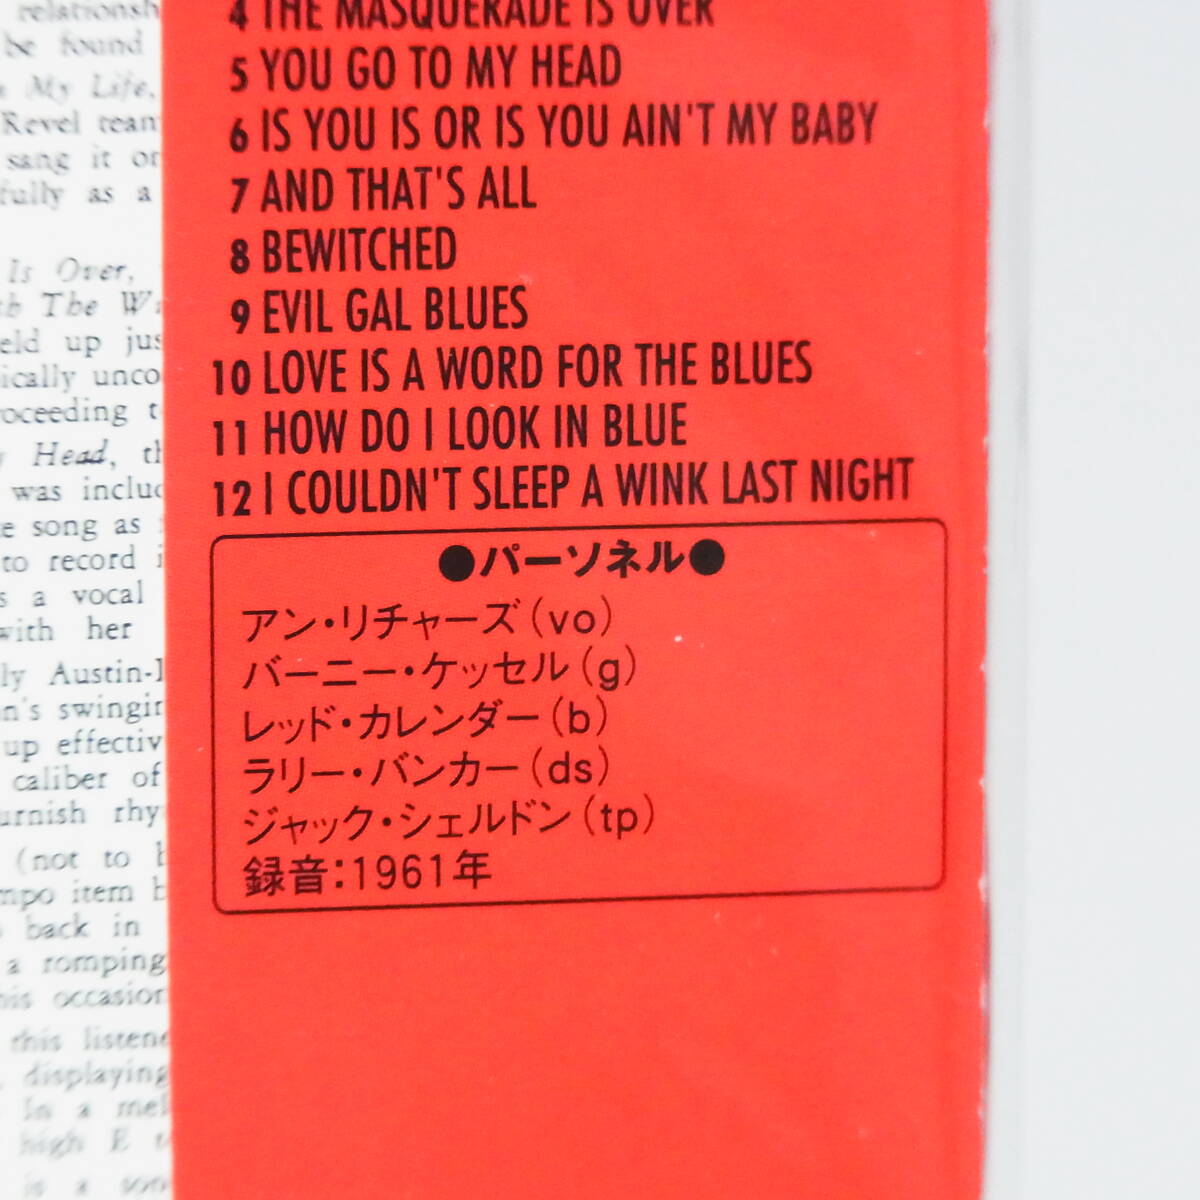 relationsh
be found
My Life,
Revel team
sang it or
fully as a
Is Over,
The
eld up jus
ically unco
roceeding
Head,
was includ
song as
to record
s a vocal
with her
ly Austin-
n's swingin
up effectiv
caliber of
urnish rhy
(not to
mpo item
back in
a romping
his occasion
this listene
displaying
In a mel
high E
is a
4 THE MASQUERADE IS OVER
5 YOU GO TO MY HEAD
6 IS YOU IS OR IS YOU AIN'T MY BABY
7 AND THAT'S ALL
8 BEWITCHED
9 EVIL GAL BLUES
10 LOVE IS A WORD FOR THE BLUES
11 HOW DO I LOOK IN BLUE
12 I COULDN'T SLEEP A WINK LAST NIGHT
●パーソネル●
アン・リチャーズ(vo)
バーニー・ケッセル(g)
レッド・カレンダー(b)
ラリー・バンカー(ds)
ジャック・シェルドン(tp)
録音:1961年